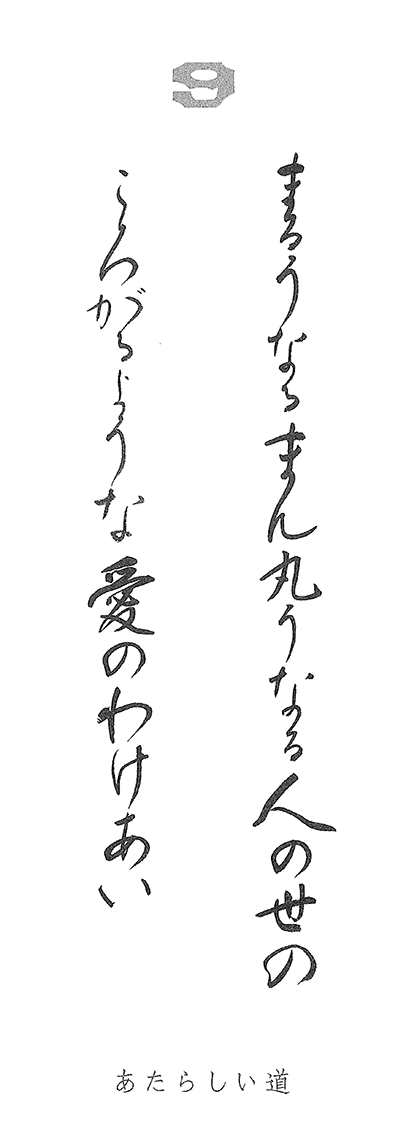 9
まるうなるまん丸うなる人の世の
ころがるような愛のわけあい
あたらしい道